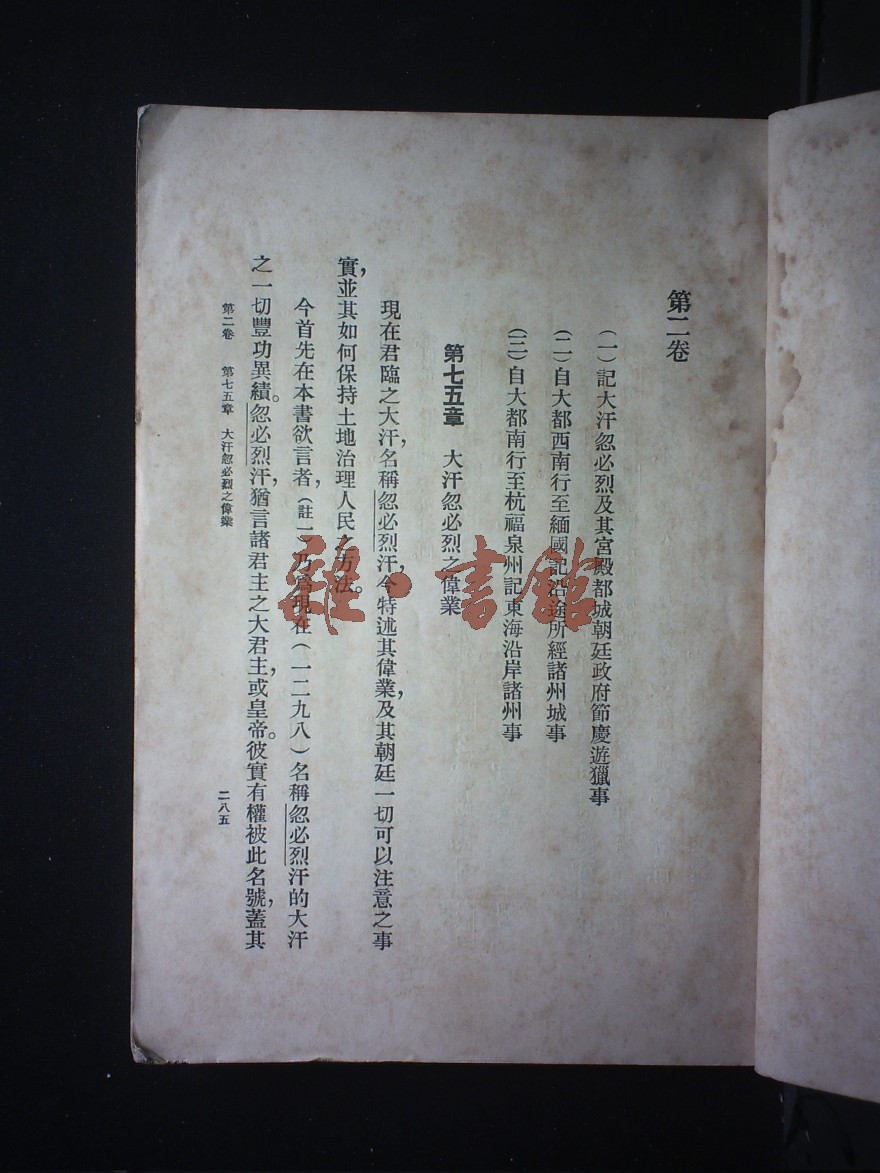 第二卷
（一）記大汗忽必烈及其宮殿都城朝廷政府節慶遊獵事
（二）自大都西南行至緬國記沿途所經諸州城事
（三）自大都南行至杭福泉州記東海沿岸諸州事
第七五章　大汗忽必烈之偉業
現在君臨之大汗，名稱忽必烈汗，今特述其偉業，及其朝廷一切可以注意之事
實，並其如何保持土地治理人民之方法。
今首先在本書欲言者，（註一）乃爲現在（一二九八）名稱忽必烈汗的大汗
之一切豐功異績。忽必烈汗，猶言諸君主之大君主，或皇帝。彼實有權被此名號，蓋其
第二卷　第七五章　大汗忽必烈之偉業
二八五
雜·書館